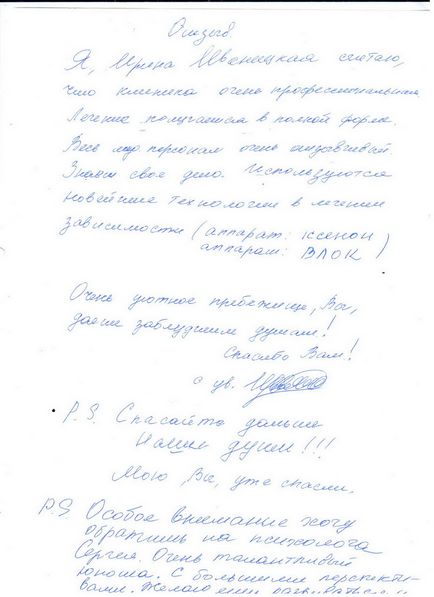 Отзыв
Я, Ирина Ивеницкая считаю,
что клиника очень профессиональная
Лечение получается в полной форме.
Весь мед персонал очень отзывчивый.
Знают свое дело. Используются
новейшие технологии в лечении
зависимости (аппарат: ксенон
аппарат: ВЛОК)
Очень уютное прибежище, Вы,
даете заблудшим душам!
Спасибо Вам!
с ув.
P.S. Спасайте дальше
Наши души!!!
Мою Вы, уже спасли.
P.S Особое внимание хочу
обратить на психолога
Сергея. Очень талантливый
юноша. С большими перспекти-
вами. Желаю ему развиваться и